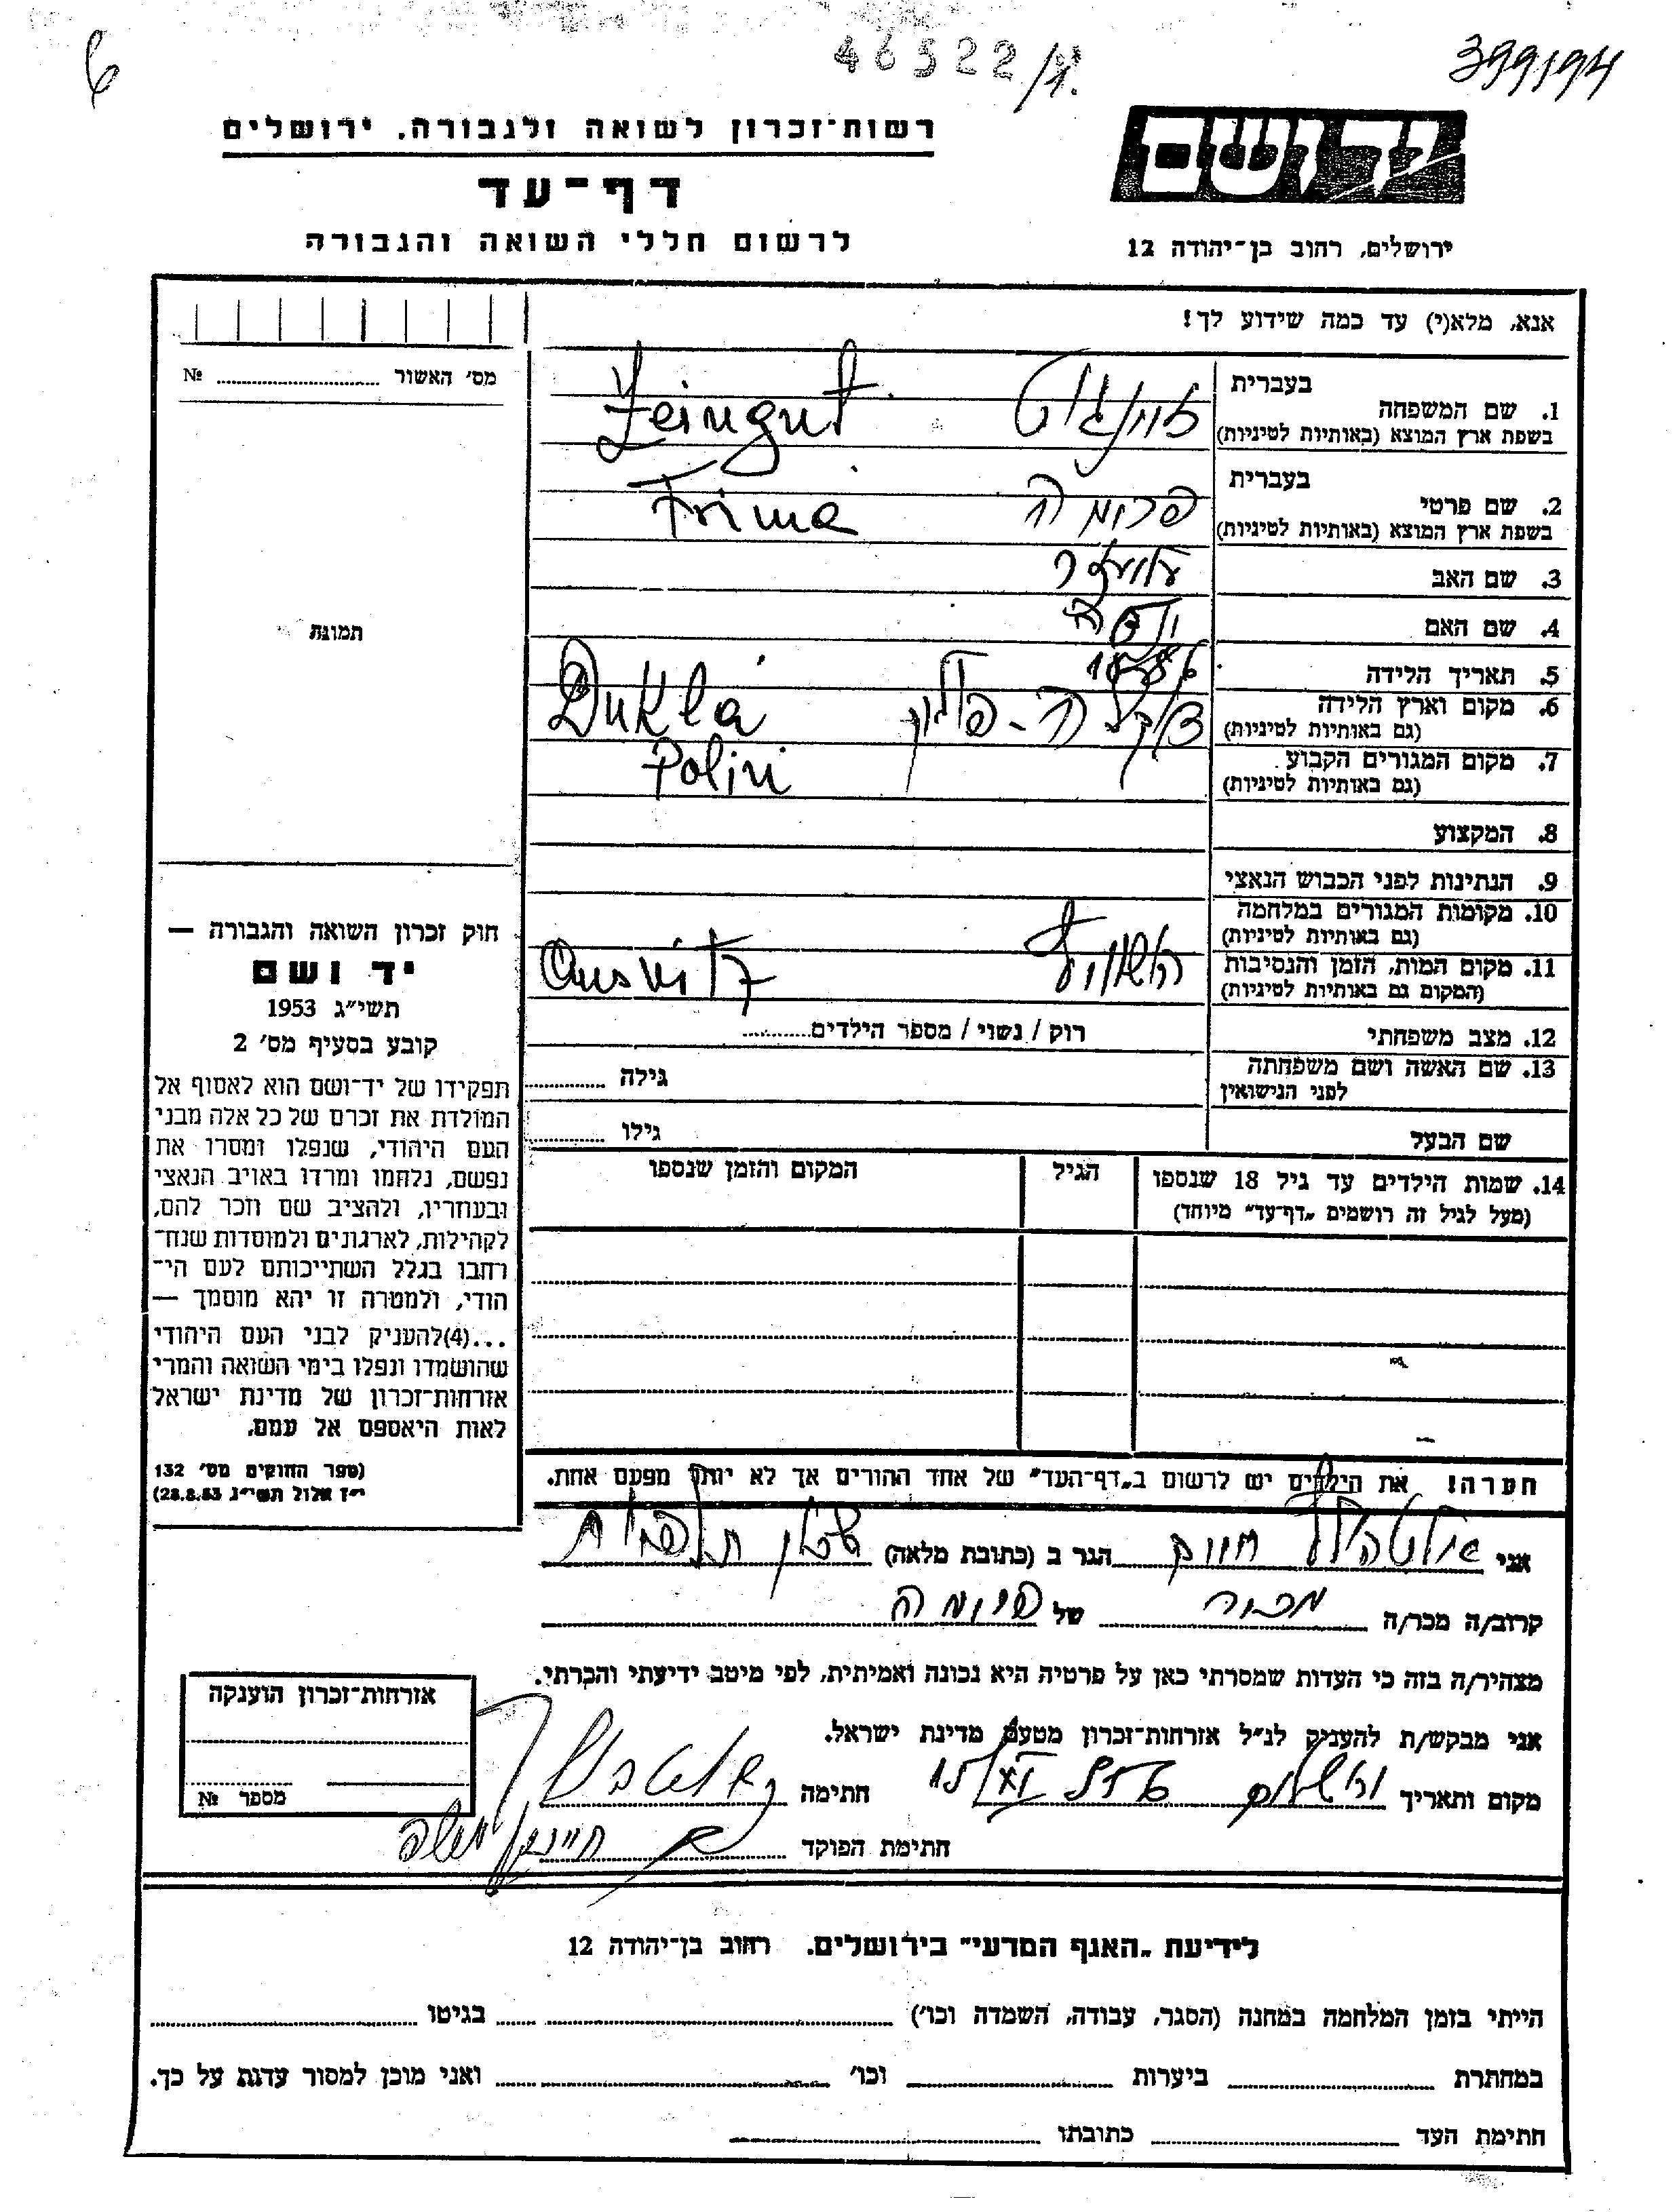 46522/א.
399194
יד ושם
רשות־זכרון לשואה ולגבורה. ירושלים
דף־עד
לרשום חללי השואה והגבורה
ירושלים, רחוב בן־יהודה 12
אנא, מלא(י) עד כמה שידוע לך!
מס׳ האשור № ....................
תמונת
1. שם המשפחה
בעברית
בשפת ארץ המוצא (באותיות לטיניות)
Zeingut
2. שם פרטי
בעברית
בשפת ארץ המוצא (באותיות לטיניות)
פרומה
Frima
3. שם האב
4. שם האם
5. תאריך הלידה
6. מקום וארץ הלידה
(גם באותיות לטיניות)
דוקלה - פולין
Dukla
Polin
7. מקום המגורים הקבוע
(גם באותיות לטיניות)
8. המקצוע
9. הנתינות לפני הכבוש הנאצי
10. מקומות המגורים במלחמה
(גם באותיות לטיניות)
11. מקום המות, הזמן והנסיבות
(המקום גם באותיות לטיניות)
Ausvitz
12. מצב משפחתי
רוק / נשוי / מספר הילדים..........
13. שם האשה ושם משפחתה
לפני הנישואין
גילה ..........
שם הבעל
גילו ..........
14. שמות הילדים עד גיל 18 שנספו
(מעל לגיל זה רושמים „דף־עד״ מיוחד)
הגיל
המקום והזמן שנספו
חוק זכרון השואה והגבורה —
יד ושם
תשי״ג 1953
קובע בסעיף מס׳ 2
תפקידו של יד־ושם הוא לאסוף אל
המולדת את זכרם של כל אלה מבני
העם היהודי, שנפלו ומסרו את
נפשם, נלחמו ומרדו באויב הנאצי
ובעוזריו, ולהציב שם וזכר להם,
לקהילות, לארגונים ולמוסדות שנח־
רחבו בגלל השתייכותם לעם הי־
הודי, ולמטרה זו יהא מוסמך —
...(4)להעניק לבני העם היהודי
שהושמדו ונפלו בימי השואה והמרי
אזרחות־זכרון של מדינת ישראל
לאות היאספם אל עמם.
(ספר החוקים מס׳ 132
י״ז אלול תשי״ג 28.8.53)
הערה! את הילדים יש לרשום ב„דף־העד״ של אחד ההורים אך לא יותר מפעם אחת.
אני הגר ב (כתובת מלאה)
קרוב/ה מכר/ה מכרה של פרומה
מצהיר/ה בזה כי העדות שמסרתי כאן על פרטיה היא נכונה ואמיתית, לפי מיטב ידיעתי והכרתי.
אני מבקש/ת להעניק לנ״ל אזרחות־זכרון מטעם מדינת ישראל.
מקום ותאריך ירושלים חתימה
חתימת הפוקד
אזרחות־זכרון הוענקה
מספר №
לידיעת „האגף המדעי״ בירושלים. רחוב בן־יהודה 12
הייתי בזמן המלחמה במחנה (הסגר, עבודה, השמדה וכו׳) .......... בגיטו ..........
במחתרת .......... ביערות .......... וכו׳ .......... ואני מוכן למסור עדות על כך.
חתימת העד .......... כתובתו ..........